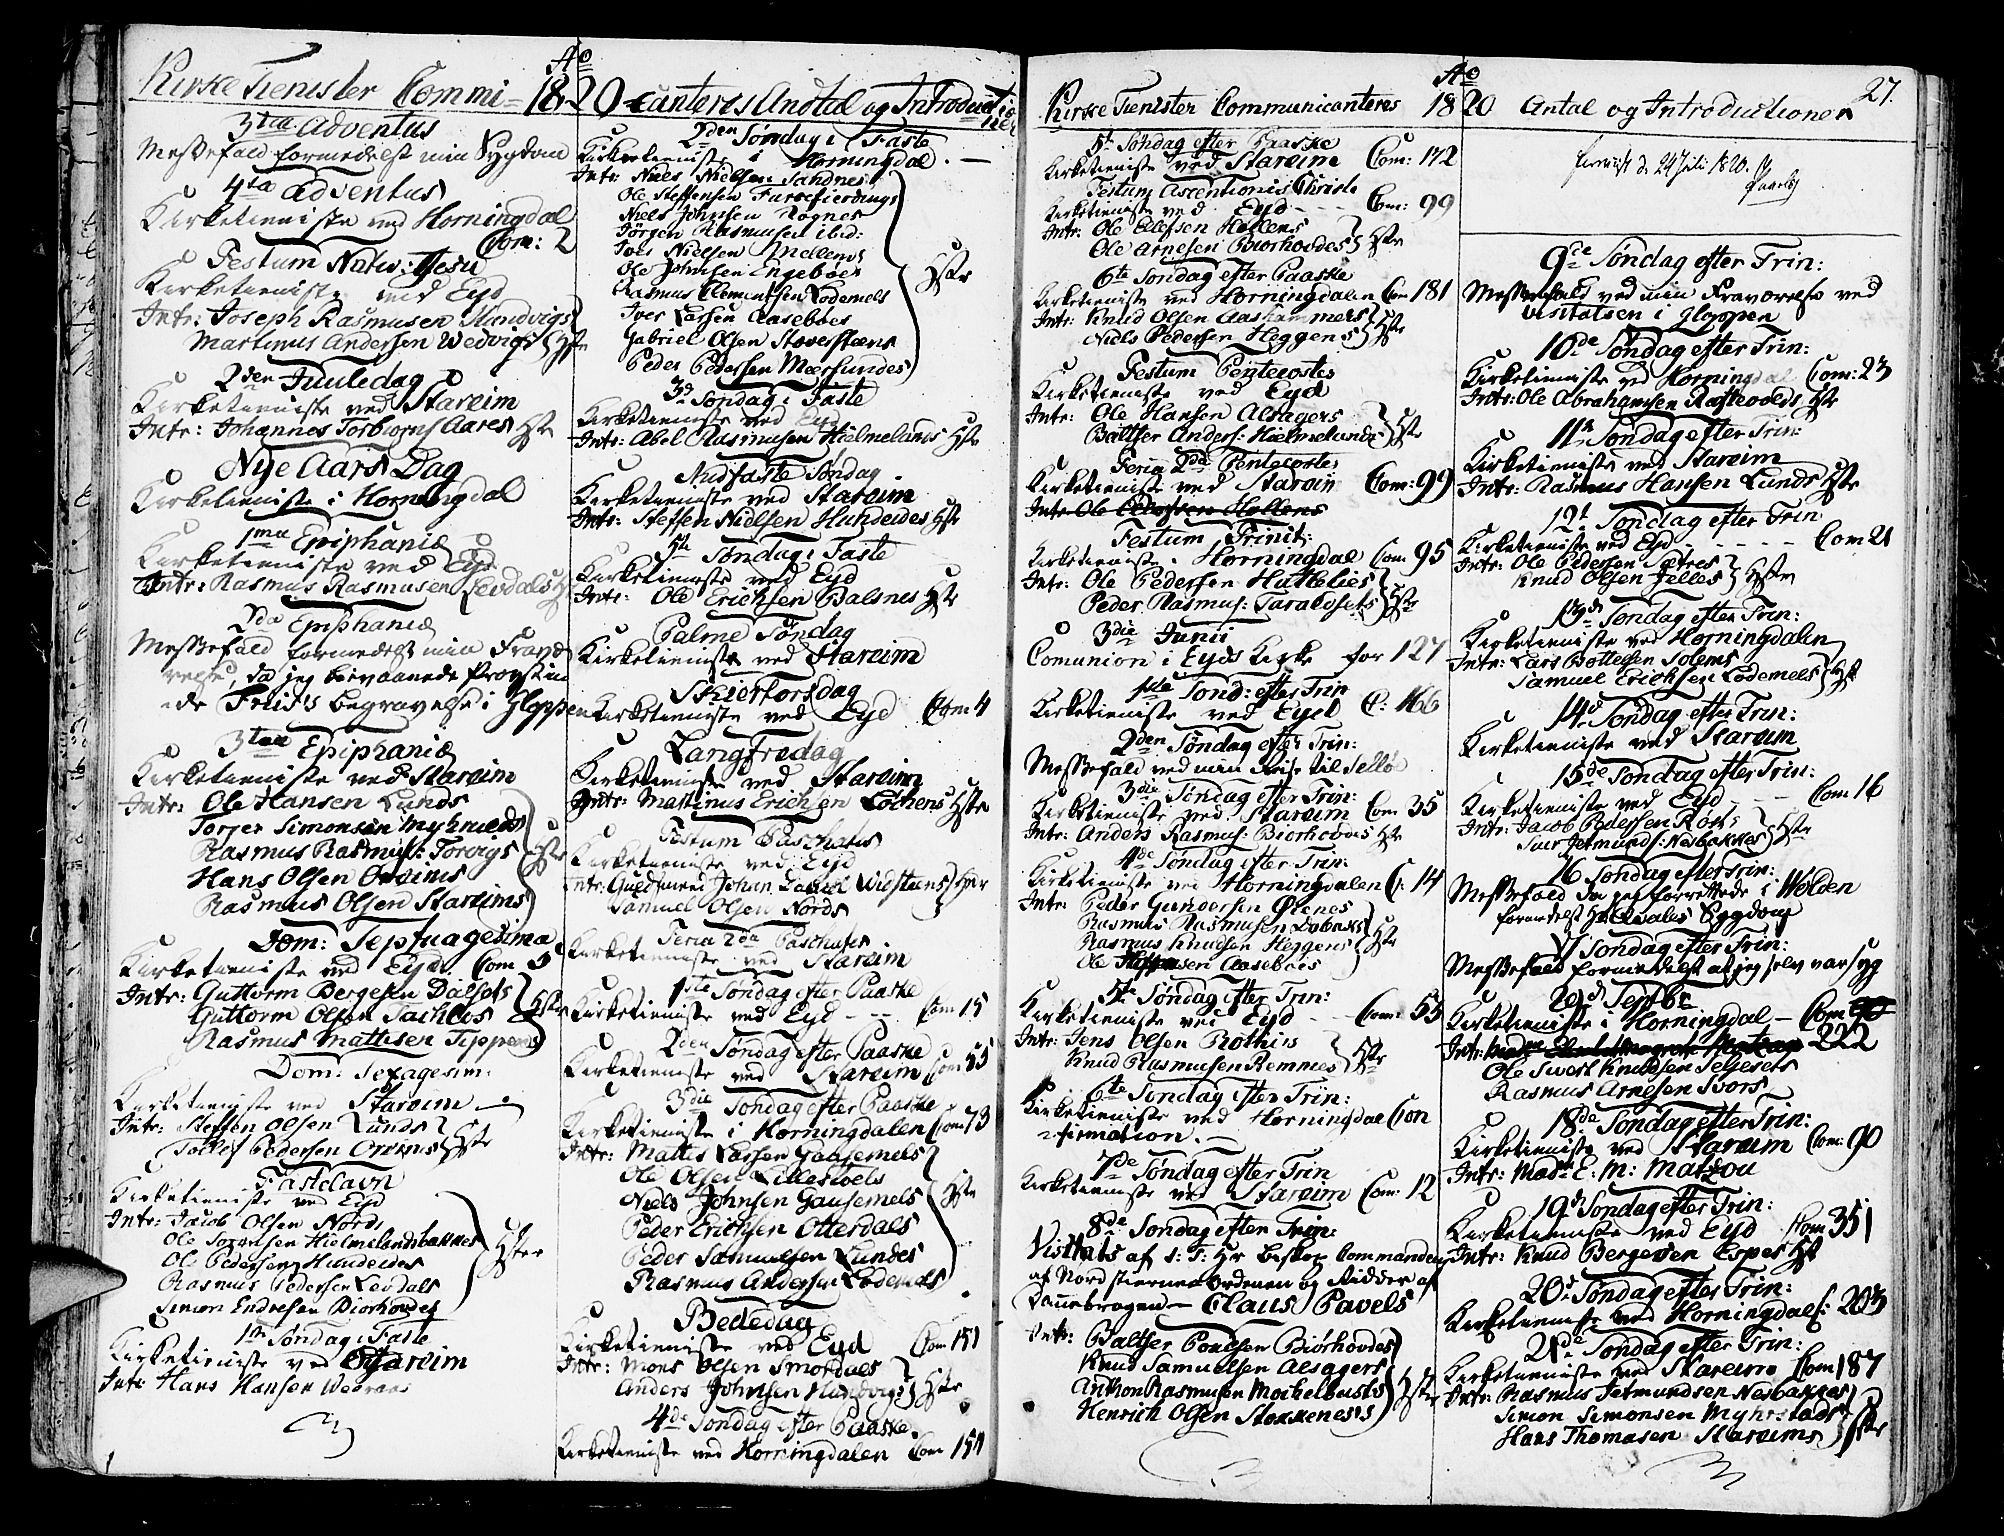 Kirke Tienister Communi- Ao 1820 -canteres Andtal og Introductioner
3tia Adventus
Messefald formedelst min Sygdom
4ta Adventus
Kirketieniste ved Horningdal
Com: 2
Festum Nativ: Jesu
Kirketieniste ved Eyd
Intr: Joseph Rasmusen Hundvigs
Martinus Andersen Wedvigs Hstr
2den Juuledag
Kirketieniste ved Stareim
Intr: Johannes Torbiørns Aares Hstr
Nye Aars Dag
Kirketieniste i Horningdal
1ma Epiphaniæ
Kirketieniste ved Eyd
Intr: Rasmus Rasmusen Levdals Hst
2da Epiphaniæ
Messefald formedelst min Fravæ-
relse, da jeg bievaanede Provstin-
de Friis's begravelse i Gloppen
3tia Epiphaniæ
Kirketieniste ved Stareim
Intr: Ole Hansen Lunds
Torger Simonsen Myhrvolds
Rasmus Rasmus: Torvigs
Hans Olsen Orreims
Rasmus Olsen Stareims
Hstr
Dom: Septuagesima
Kirketieniste ved Eyd Com 5
Intr: Guttorm Bergesen Dalsets
Guttorm Olsen
Rasmus Mattisen
Hstr
Dom: Sexagesim:
Kirketieniste ved Stareim
Intr: Steffen Olsen Lunds
Tollef Pedersen Orreims Hstr
Fastelavn
Kirketieniste ved Eyd
Intr: Jacob Olsen Nords
Ole Hielmelandsbakkes
Ole Pedersen Hundeides
Rasmus Pedersen Levdals
Simon Endresen Biørhovdes
Hstr
1ste Søndag i Faste
Kirketieniste ved Stareim
Intr: Hans Hansen
2den Søndag i Faste
Kirketieniste i Horningdal
Intr: Niels Nielsen Sandnes
Ole Steffensen Farsefierdings
Niels Johnsen Rognes
Jørgen Rasmusen ibid:
Iver Nielsen Mellems
Ole Johnsen Engebøes
Rasmus Clementsen Lødemels
Iver Larsen Aasebøes
Gabriel Olsen
Peder Pedersen Meersundes
Hstr
3die Søndag i Faste
Kirketieniste ved Eyd
Intr: Abel Rasmusen Hielmelands Hstr
Midfaste Søndag
Kirketieniste ved Stareim
Intr: Steffen Nielsen Hundeides Hstr
5te Søndag i Faste
Kirketieniste ved Eyd
Intr: Ole Erichsen Balsnes Hstr
Palme Søndag
Kirketieniste ved Stareim
Skiertorsdag
Kirketieniste ved Eyd Com 4
Langfredag
Kirketieniste ved Stareim
Intr: Martinus Erichsen Løchens Hstr
Festum Paschatis
Kirketieniste ved Eyd
Intr: Guldsmed Johan Daniel Widsteens
Samuel Olsen Nords
Feria 2da Paschatis
Kirketieniste ved Stareim
1ste Søndag efter Paaske
Kirketieniste ved Eyd Com 15
2den Søndag efter Paaske
Kirketieniste ved Stareim Com 55
3die Søndag efter Paaske
Kirketieniste i Horningdalen Com 73
Intr: Mattis Larsen Gausemels
Ole Olsen Lillestøels
Niels Johnsen Gausemels
Peder Erichsen Otterdals
Peder Samuelsen Lundes
Rasmus Andersen Lødemels
Hstr
Bededag
Kirketieniste ved Eyd Com 151
Intr: Mons Olsen Smørdals
Anders Johnsen Hundvigs Hstr
4de Søndag efter Paaske.
Kirketieniste ved Horningdalen Com 154
Kirke Tienister Communicanteres Ao 1820 Antal og Introductioner 27.
5t Søndag efter Paaske
Kirketieniste ved Stareim Com: 172
Festum Ascentionis Christi
Kirketieniste ved Eyd Com: 99
Intr: Ole Ellefsen Hollens
Ole Arnesen Biørhovdes Hstr
6te Søndag efter Paaske
Kirketieniste ved Horningdalen Com 181
Intr: Knud Olsen Aashammers
Niels Pedersen Heggens Hstr
Festum Pentecostes
Kirketieniste ved Eyd
Intr: Ole Hansen Alsagers
Baltser Anders: Hielmelands Hstr
Feria 2da Pentecostes
Kirketieniste ved Stareim Com: 99
Intr: Ole Ellefsen Hollens
Festum Trinit:
Kirketieniste i Horningdal Com 95
Intr: Ole Pedersen Huttelies
Peder Rasmus: Taraldsets Hstr
3die Junii
Comunion i Eyds Kirke for 127
1ste Sønd: efter Trin
Kirketieniste ved Eyd C: 166
2den Søndag efter Trin:
Messefald ved min Reise til Selløe
3die Søndag efter Trin:
Kirketieniste ved Stareim Com 35
Intr: Anders Rasmus: Biørhovdes Hstr
4de Søndag efter Trin:
Kirketieniste ved Horningdalen C: 14
Intr: Peder Gundersen Øienes
Rasmus Rasmusen
Rasmus Knudsen Heggens
Ole Aasebøes
Hstr
5te Søndag efter Trin:
Kirketieniste ved Eyd Com: 55
Intr: Jens Olsen Rothiis
Knud Rasmusen Remmes Hstr
6te Søndag efter Trin:
Kirketieniste ved Horningdal Con
-firmation.
7de Søndag efter Trin
Kirketieniste ved Stareim Com: 12
8de Søndag efter Trin:
Visitats af S: T: Hr Biskop Commandeur
af Nordstierne Ordenen og Ridder af
Dannebrogen Claus Pavels
Intr: Baltser Poulsen Biørhovdes
Knud Samuelsen Alsagers
Anthon Rasmusen Mockelbusts
Henrich Olsen Stokkenes's
Hstr
d. 24 Juli 1820.
Pavels
9de Søndag efter Trin:
Messefald ved min Fraværelse ved
Visitatsen i Gloppen
10de Søndag efter Trin:
Kirketieniste ved Horningdal Com: 23
Intr: Ole Abrahamsen Hstr
11te Søndag efter Trin:
Kirketieniste ved Stareim
Intr: Rasmus Hansen Lunds Hstr
12t Søndag efter Trin
Kirketieniste ved Eyd Com 21
Intr: Ole Pedersen Sætres
Knud Olsen Hstr
13de Søndag efter Trin:
Kirketieniste ved Horningdalen
Intr: Lars Bottelsen Solems
Samuel Erichsen Lødemels Hstr
14d Søndag efter Trin:
Kirketieniste ved Stareim
15de Søndag efter Trin:
Kirketieniste ved Eyd Com 16
Intr: Jacob Pedersen
Iver Jetmunds: Nesbakkes Hstr
16 Søndag efter Trin:
Messefald da jeg forrettede i Selden
formedelst Hr Sygdom
17 Søndag efter Trin:
Messefald formedelst at jeg selv var syg
20d Septbr
Kirketieniste i Horningdal Com 222
Intr:
Ole Sivert Knudsen Seljesets
Rasmus Arnesen Svors
18de Søndag efter Trin:
Kirketieniste ved Stareim Com: 90
Intr: Mad: E: M: Matzou
19d Søndag efter Trin:
Kirketieniste ved Eyd Com 351
Intr: Knud Bergersen Espes Hst
20d Søndag efter Trin:
Kirketieniste ved Horningdals: 203
21de Søndag efter Trin:
Kirketieniste ved Stareim Com 187
Intr: Rasmus Jetmundsen Nesbakkes
Simon Simonsen Myhrstads
Hans Thomasen Stareims
Hstr